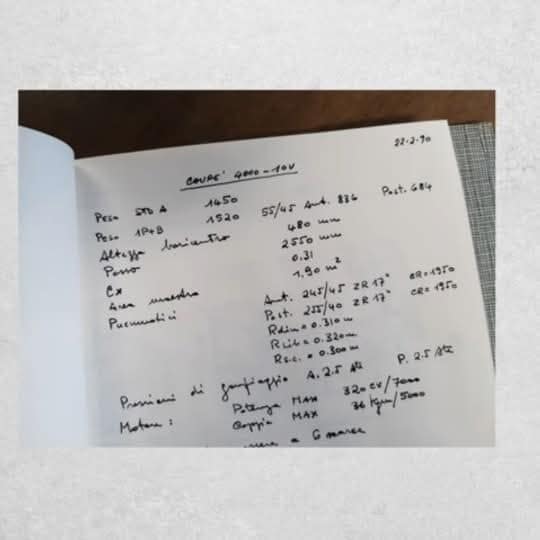 22-2-90
COUPE' 4000-10V
Peso STD A 1450
Peso 1P+B 1520 55/45 Ant. 836 Post. 684
Altezza baricentro 480 mm
Passo 2550 mm
Cx 0.31
Area maestra 1,90 m²
Pneumatici Ant. 245/45 ZR 17" CR=1950
Post. 255/40 ZR 17" CR=1950
Rdin = 0.310 m
Rlib = 0.320 m
Rs.c. = 0.300 m
Pressioni di gonfiaggio A. 2.5 Ate P. 2.5 Ate
Motore: Potenza MAX 320 CV/7000
Coppia MAX 36 Kgm/5000
a 6 marce